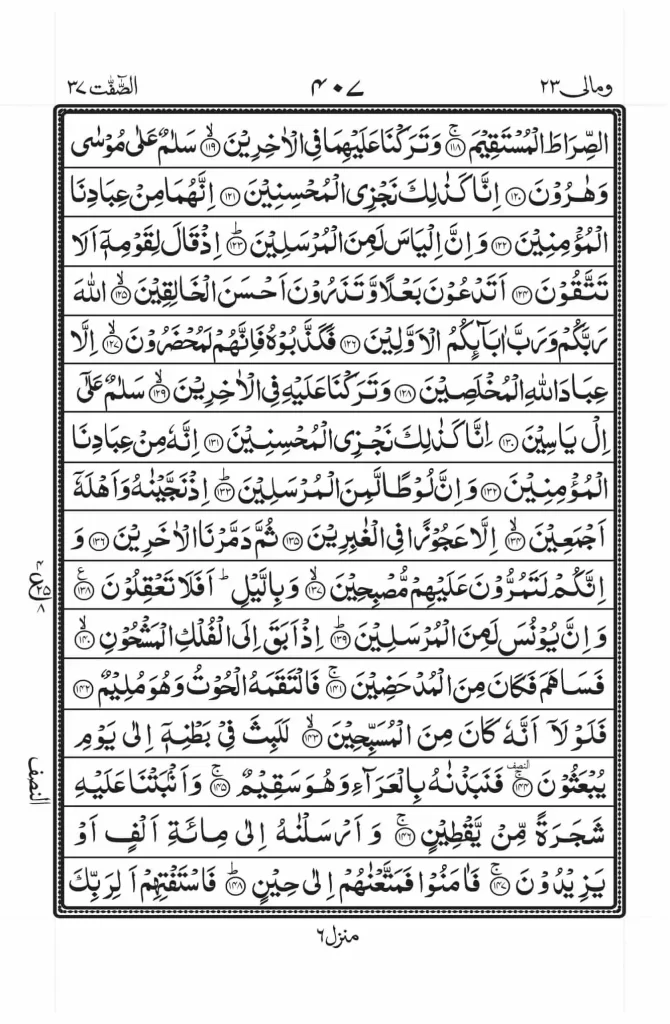 ومالی ۲۳ ۴۰۷ الصّٰٓفّٰت ۳۷
الصِّرَاطَ الْمُسْتَقِیْمَ ۚ﴿۱۱۸﴾ وَ تَرَكْنَا عَلَیْهِمَا فِی الْاٰخِرِیْنَ ۙ﴿۱۱۹﴾ سَلٰمٌ عَلٰی مُوْسٰی
وَ هٰرُوْنَ ﴿۱۲۰﴾ اِنَّا كَذٰلِكَ نَجْزِی الْمُحْسِنِیْنَ ﴿۱۲۱﴾ اِنَّهُمَا مِنْ عِبَادِنَا
الْمُؤْمِنِیْنَ ﴿۱۲۲﴾ وَ اِنَّ اِلْیَاسَ لَمِنَ الْمُرْسَلِیْنَ ؕ﴿۱۲۳﴾ اِذْ قَالَ لِقَوْمِهٖۤ اَلَا
تَتَّقُوْنَ ﴿۱۲۴﴾ اَتَدْعُوْنَ بَعْلًا وَّ تَذَرُوْنَ اَحْسَنَ الْخَالِقِیْنَ ۙ﴿۱۲۵﴾ اللّٰهَ
رَبَّكُمْ وَ رَبَّ اٰبَآىِٕكُمُ الْاَوَّلِیْنَ ﴿۱۲۶﴾ فَكَذَّبُوْهُ فَاِنَّهُمْ لَمُحْضَرُوْنَ ۙ﴿۱۲۷﴾ اِلَّا
عِبَادَ اللّٰهِ الْمُخْلَصِیْنَ ﴿۱۲۸﴾ وَ تَرَكْنَا عَلَیْهِ فِی الْاٰخِرِیْنَ ۙ﴿۱۲۹﴾ سَلٰمٌ عَلٰۤی
اِلْ یَاسِیْنَ ﴿۱۳۰﴾ اِنَّا كَذٰلِكَ نَجْزِی الْمُحْسِنِیْنَ ﴿۱۳۱﴾ اِنَّهٗ مِنْ عِبَادِنَا
الْمُؤْمِنِیْنَ ﴿۱۳۲﴾ وَ اِنَّ لُوْطًا لَّمِنَ الْمُرْسَلِیْنَ ؕ﴿۱۳۳﴾ اِذْ نَجَّیْنٰهُ وَ اَهْلَهٗۤ
اَجْمَعِیْنَ ۙ﴿۱۳۴﴾ اِلَّا عَجُوْزًا فِی الْغٰبِرِیْنَ ﴿۱۳۵﴾ ثُمَّ دَمَّرْنَا الْاٰخَرِیْنَ ﴿۱۳۶﴾ وَ
اِنَّكُمْ لَتَمُرُّوْنَ عَلَیْهِمْ مُّصْبِحِیْنَ ۙ﴿۱۳۷﴾ وَ بِالَّیْلِ ؕ اَفَلَا تَعْقِلُوْنَ ۠﴿۱۳۸﴾
وَ اِنَّ یُوْنُسَ لَمِنَ الْمُرْسَلِیْنَ ؕ﴿۱۳۹﴾ اِذْ اَبَقَ اِلَی الْفُلْكِ الْمَشْحُوْنِ ۙ﴿۱۴۰﴾
فَسَاهَمَ فَكَانَ مِنَ الْمُدْحَضِیْنَ ۚ﴿۱۴۱﴾ فَالْتَقَمَهُ الْحُوْتُ وَ هُوَ مُلِیْمٌ ﴿۱۴۲﴾
فَلَوْ لَاۤ اَنَّهٗ كَانَ مِنَ الْمُسَبِّحِیْنَ ۙ﴿۱۴۳﴾ لَلَبِثَ فِیْ بَطْنِهٖۤ اِلٰی یَوْمِ
یُبْعَثُوْنَ ﴿۱۴۴﴾ النصف فَنَبَذْنٰهُ بِالْعَرَآءِ وَ هُوَ سَقِیْمٌ ۚ﴿۱۴۵﴾ وَ اَنْۢبَتْنَا عَلَیْهِ
شَجَرَةً مِّنْ یَّقْطِیْنٍ ۚ﴿۱۴۶﴾ وَ اَرْسَلْنٰهُ اِلٰی مِائَةِ اَلْفٍ اَوْ
یَزِیْدُوْنَ ۚ﴿۱۴۷﴾ فَاٰمَنُوْا فَمَتَّعْنٰهُمْ اِلٰی حِیْنٍ ؕ﴿۱۴۸﴾ فَاسْتَفْتِهِمْ اَلِرَبِّكَ
النصف
منزل ۶